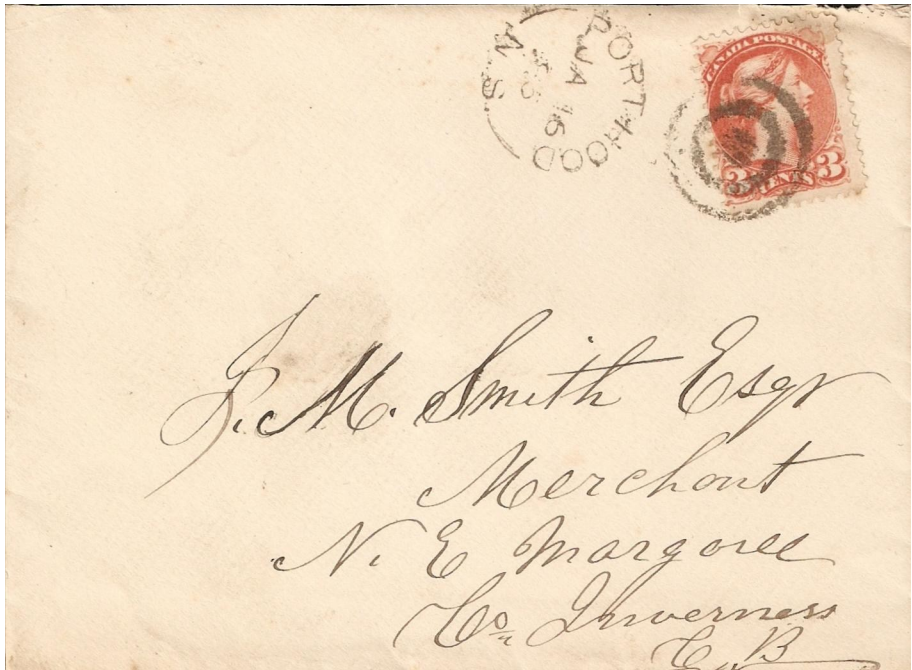 PORT HOOD
JA 16
N.S
CANADA POSTAGE
3 CENTS 3
J. M. Smith Esqr
Merchant
N. E Margaree
Co. Inverness
C. B